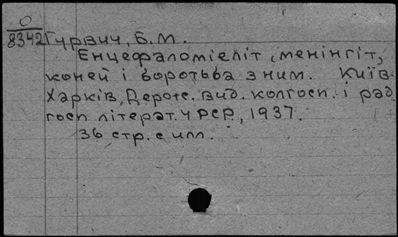 О
8342 Гурвич, Б.М.
Енцефаломієліт, менінгіт,
коней і боротьба з ним. Київ-
Харків, Держ. вид. колгосп. і рад
госп літерат. УРСР, 1937.
36 стр. с илл.